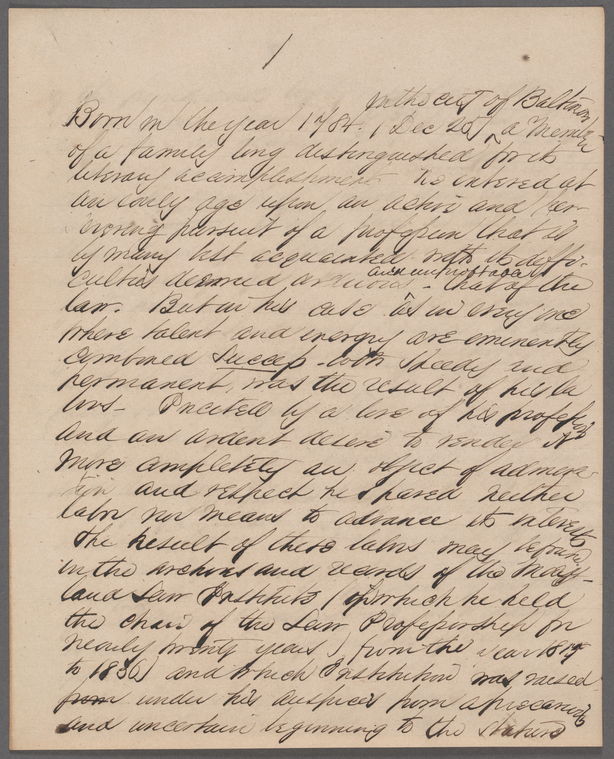 1
in the city of Baltimore
Born in the year 1784. (Dec 25) ^ a Member
of a family long distinguished for its
literary accomplishments He entered at
an early age upon an active and per-
severing pursuit of a profession that is
by many best acquainted with its diffi-
and unprofitable
culties deemed arduous - that of the
law. But in his case as in every one
where talent and energy are eminently
combined success both speedy and
permanent, was the result of his la
bors - Incited by a love of his profession
and an ardent desire to render it
more completely an object of admira-
tion and respect he spared neither
labor nor means to advance its interests
The Result of these labors may be found
in the archives and records of the Mary-
land Law Institute (of which he held
the chair of the Law Professorship for
nearly twenty years) from the year 1817
to 1836) and which Institution was raised
from under his auspices from a precarious
and uncertain beginning to the stature